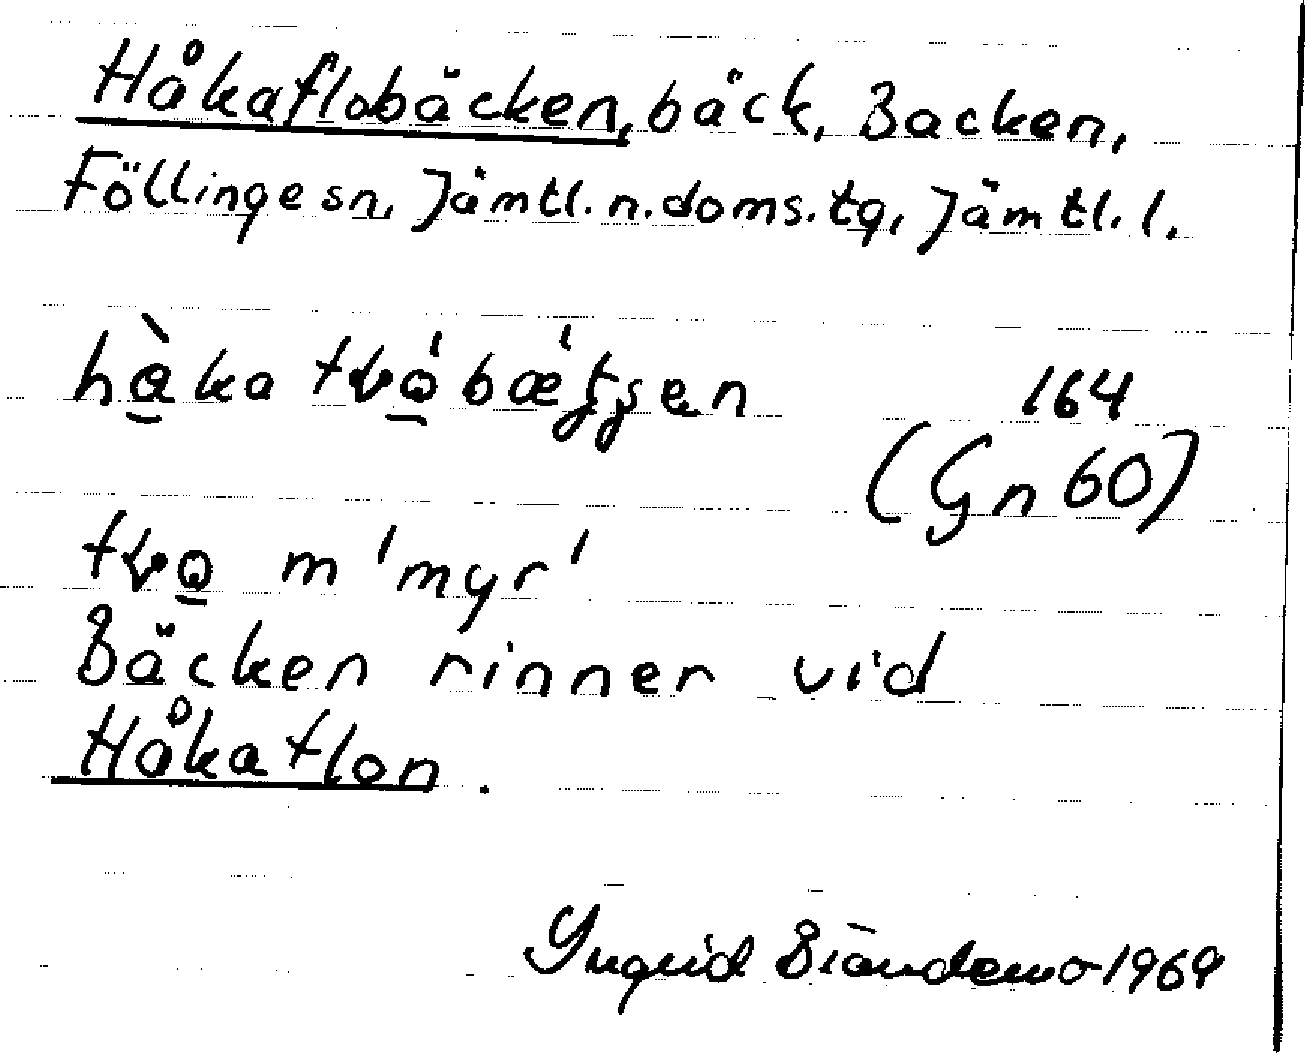 Håkaflobäcken, bäck, Backen,
Föllinge sn, Jämtl. n. doms. tg, Jämtl. l.
164
(Gn 60)
m 'myr'
Bäcken rinner vid
Håkaflon.
Ingrid 1969